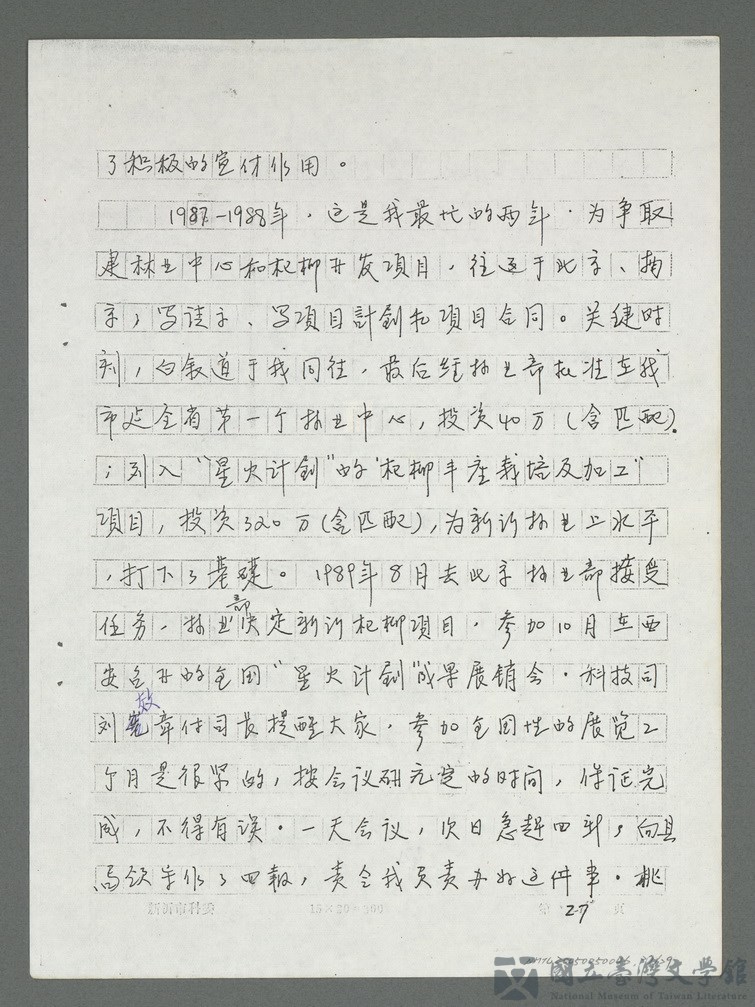 了积极的宣付作用。
1987-1988年，这是我最忙的两年．为争取
建林业中心和杞柳开发项目，往返于北京、南
京，写请示、写项目計划和项目合同。关键时
刻，白叙道于我同往，最后经林业部批准在我
市建全省第一个林业中心，投资40万（含匹配）
；列入“星火计划”的‘杞柳丰产栽培及加工”
项目，投资320万（含匹配），为新沂林业上水平
，打下了基礎。1989年8月去北京林业部接受
任务，林业部决定新沂杞柳项目，参加10月在西
安召开的全国“星火计划”成果展销会．科技司
刘效章付司长提醒大家，参加全国性的展览2
个月是很紧的，按会议研究定的时间，保证完
成，不得有误．一天会议，次日急赶回新，向县
领导作了回報，责令我负责办好这件事．桃
新沂市科委 15×20=300 第27页
國立臺灣文學館
National Museum of Taiwan Literature